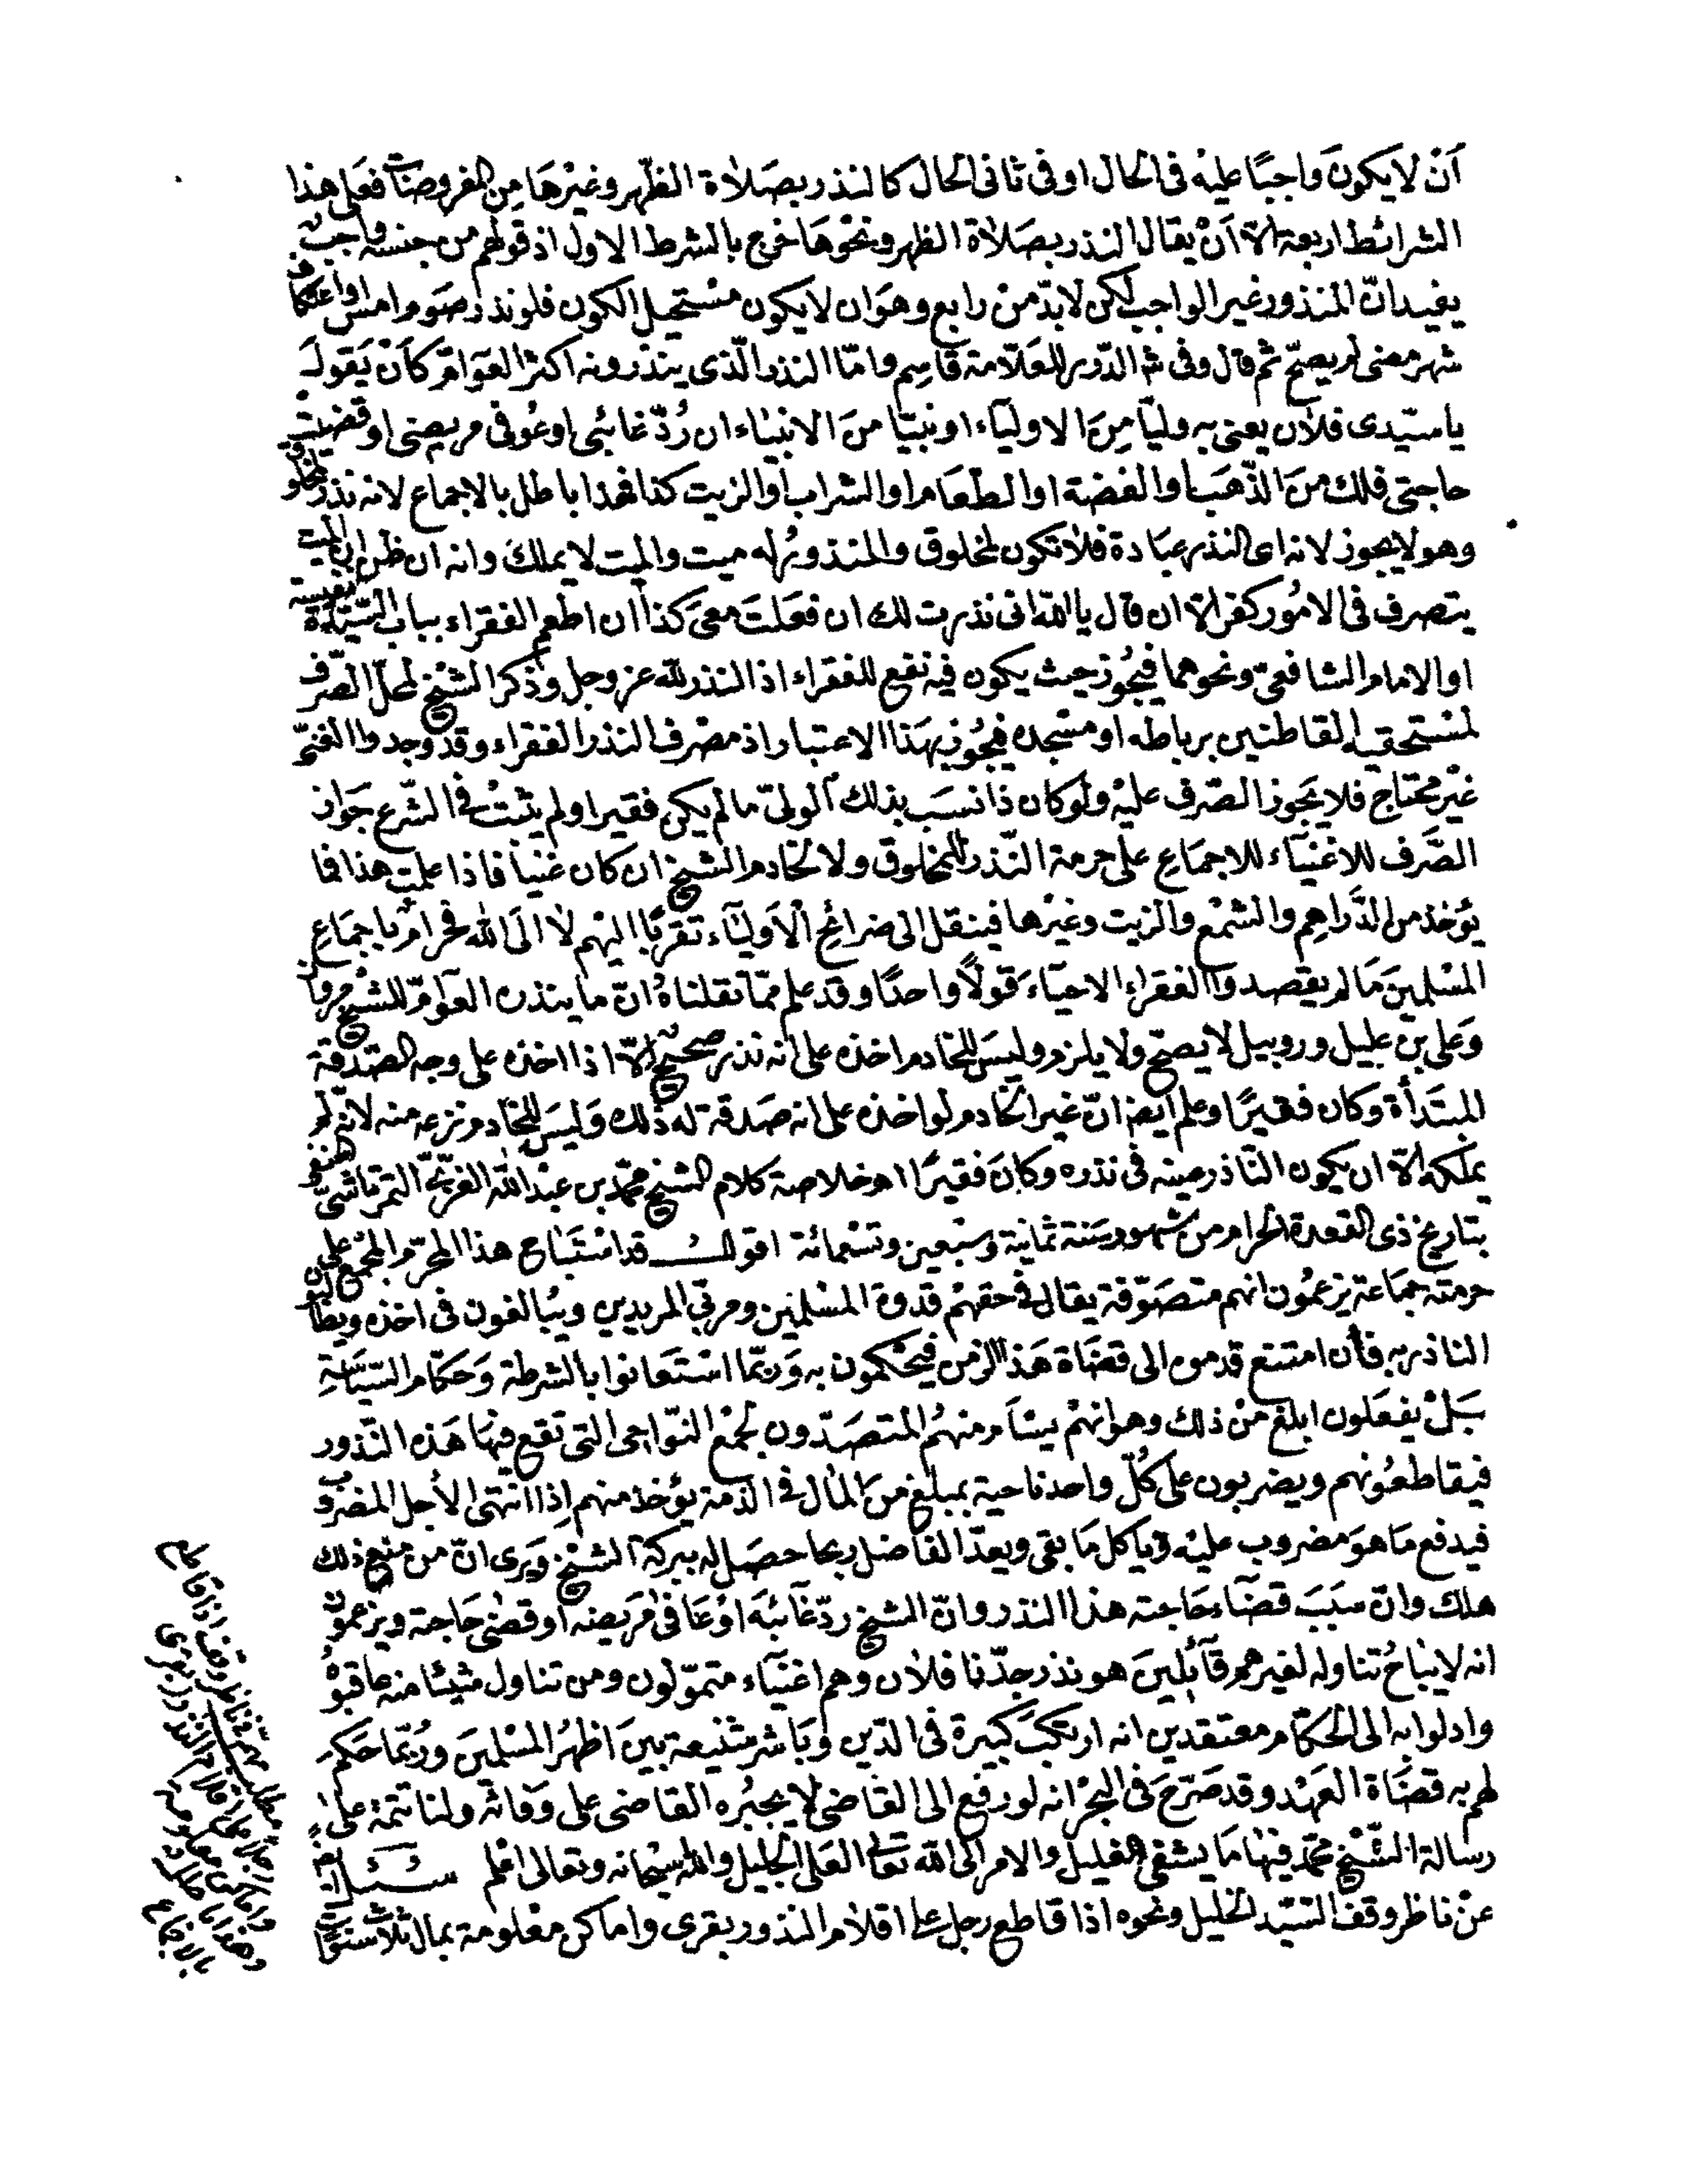 اَنْ لا يكونَ واجبًا عليْه فى الحال او فى ثانى الحال كالنذر بصَلاة الظهر وغيْرهَا مِن المفروضات فعلى هذا
الشرائط اربعة الّا اَنْ يقال النذر بصَلاة الظهر ونحْوهَا خرج بالشرط الاول اذ قولهم من جنسه واجبٌ
يفيد انّ المنذور غير الواجب لكن لا بدّ منْ رابع وهوَ ان لا يكون مسْتحيل الكون فلو نذر صَوم امس او اعتكاف
شهر مضى لم يصحّ ثم قال وفى شر الدّرر للعَلّامة قاسِم وامّا النذر الّذى ينذرونه اكثر العَوامّ كاَنْ يَقولَ
يا سيّدى فلان يعنى به وليّا مِنَ الاولياء او نبيّا منَ الانبياء ان رُدّ غائبى او عُوفى مريضى او قضيت
حاجتى فلك منَ الذّهَب او الفضة او الطعَام او الشراب او الزيت كذا فهذا باطل بالاجماع لانه نذر لمخلوق
وهو لا يجوز لانه اى النذر عبَادة فلا تكون لمخلوق والمنذورُ له ميت والميت لا يملكَ وانه ان ظن ان الميت
يتصرف فى الامُور كفر الّا ان قال يا اللّه انى نذرت لك ان فعَلتَ معىَ كذا ان اطعم الفقراء بباب السّيّدة نفيسة
او الامام الشافعىّ ونحوهما فيجُوز حيث يكون فيه نفع للفقراء اذ النذر للّه عز وجل وذكر الشيْخ لمحلّ الصّرف
لمسْتحقيه القاطنين برباطه او مسْجده فيجُوز بهَذا الاعتبار اذ مصْرف النذر الفقراء وقد وجدوا الغنىّ
غيْر محتاج فلا يَجوز الصّرف عليْه ولو كان ذا نسَب بذلك الولىّ ما لم يكن فقيرا ولم يثبتْ فى الشّرع جَواز
الصَّرف للاغنيَاء للاجمَاعِ على حرمة النّذر للمخلوق ولا لخادم الشيخ ان كان غنيا فاذا علمت هذا فما
يؤخذ من الدَّراهِم والشمْع والزيت وغيْرها فينقل الى ضرائحِ الاَوليَاء تقربًا اليهْم لا الَى اللّه فحرامٌ باجمَاعِ
المسْلِمينَ مَا لم يقصدوا الفقراء الاحيَاءَ قولًا واحدًا وقد علم ممّا نقلناهُ انّ ما ينذره العوَامّ للشيْخ مروان
وَعلى بن عليل وروبيل لا يصحّ ولا يلزم وليسَ للخادم اخذه على انه نذر صحيحٌ الّا اذا اخذه على وجه الصّدقة
المبتَدأة وكان فقيرًا وعلم ايض انّ غير الخادم لو اخذه على انه صَدقة له ذلك وَليسَ للخادم نزعه منه لانّه لم
يملكه الّا ان يكون النّاذر عينه فى نذره وكانَ فقيرًا اهـ خلاصة كلام الشيخ محمّد بن عبْد اللّه الغزّىّ التمرتاشىّ الحنفى
بتاريخ ذى القعدة الحرام من شهور سَنة ثمانية وسَبْعين وتسْمائة اقول قد اسْتبَاح هذا المحرّم المجْمع على
حرمته جمَاعة يزعمُون انهم متصَوّفة يقال فى حقهْم قدوة المسْلمِيْن ومربّى المريدين ويبَالغون فى اخذه ويطالبون
الناذر به فأن امتنع قدموه الى قضَاة هَذا الزمن فيحْكمون به وَربّما اسْتَعانوا بالشرطة وَحكّام السّيَاسةِ
بَلْ يفعَلون ابلغ منْ ذلك وهو انهمْ يستَام منهمُ المتصَدّون لجَمْع النّواحى التى تقع فيهَا هَذه النّذور
فيقاطعُونهم ويضربون على كُلّ واحد ناحية بمبلغ منَ المال فى الذمة يؤخذ منهم اِذا انتهى الأجل المضروب
فيدفع مَا هوَ مضروب عليْه وياكل مَا بقى ويعدّ الفاضل ربحا حصَل له ببركة الشيْخ ويَرى انّ من منع ذلك
هلك وانّ سبَبَ قضَاء حَاجته هذا النذر وانّ الشيخ ردّ غَائبَه اوْ عَافىٰ مَريضه او قضىٰ حَاجته ويزعموْن
انه لا يبَاحُ تناوله لغيرهم قآئلِينَ هو نذر جدّنا فلان وهم اغنيَاء متموّلون ومن تناول شيئا منه عاقبوْهُ
وادلوا به الى الحكّام معتقدين انه ارتكبَ كبيرة فى الدّين وبَاشر شنيعة بينَ اظهُر المسْلمينَ ورُبّما حَكمَ
لهم به قضَاة العَهْد وقد صَرّحَ فى البحْر انه لو رفع الى القاضى لا يجبُره القاضى على وَفائه ولنا تتمة علىٰ
رسالة الشّيْخ محمّد فيهَا مَا يشفى الغليل والامر الى اللّه تعَالى العَلى الجليل واللّه سبْحانه وتعالى اعْلم سُئل
عنْ ناظر وقف السيّد الخليل ونحوه اذا قاطع رجل على اقلام النذور بقرى واماكن معْلومة بمال ثلاث سَنوَات
مطلب
ناظر وقف اذا قاطع
على اقلام النذور بقرى
واماكن معلومة